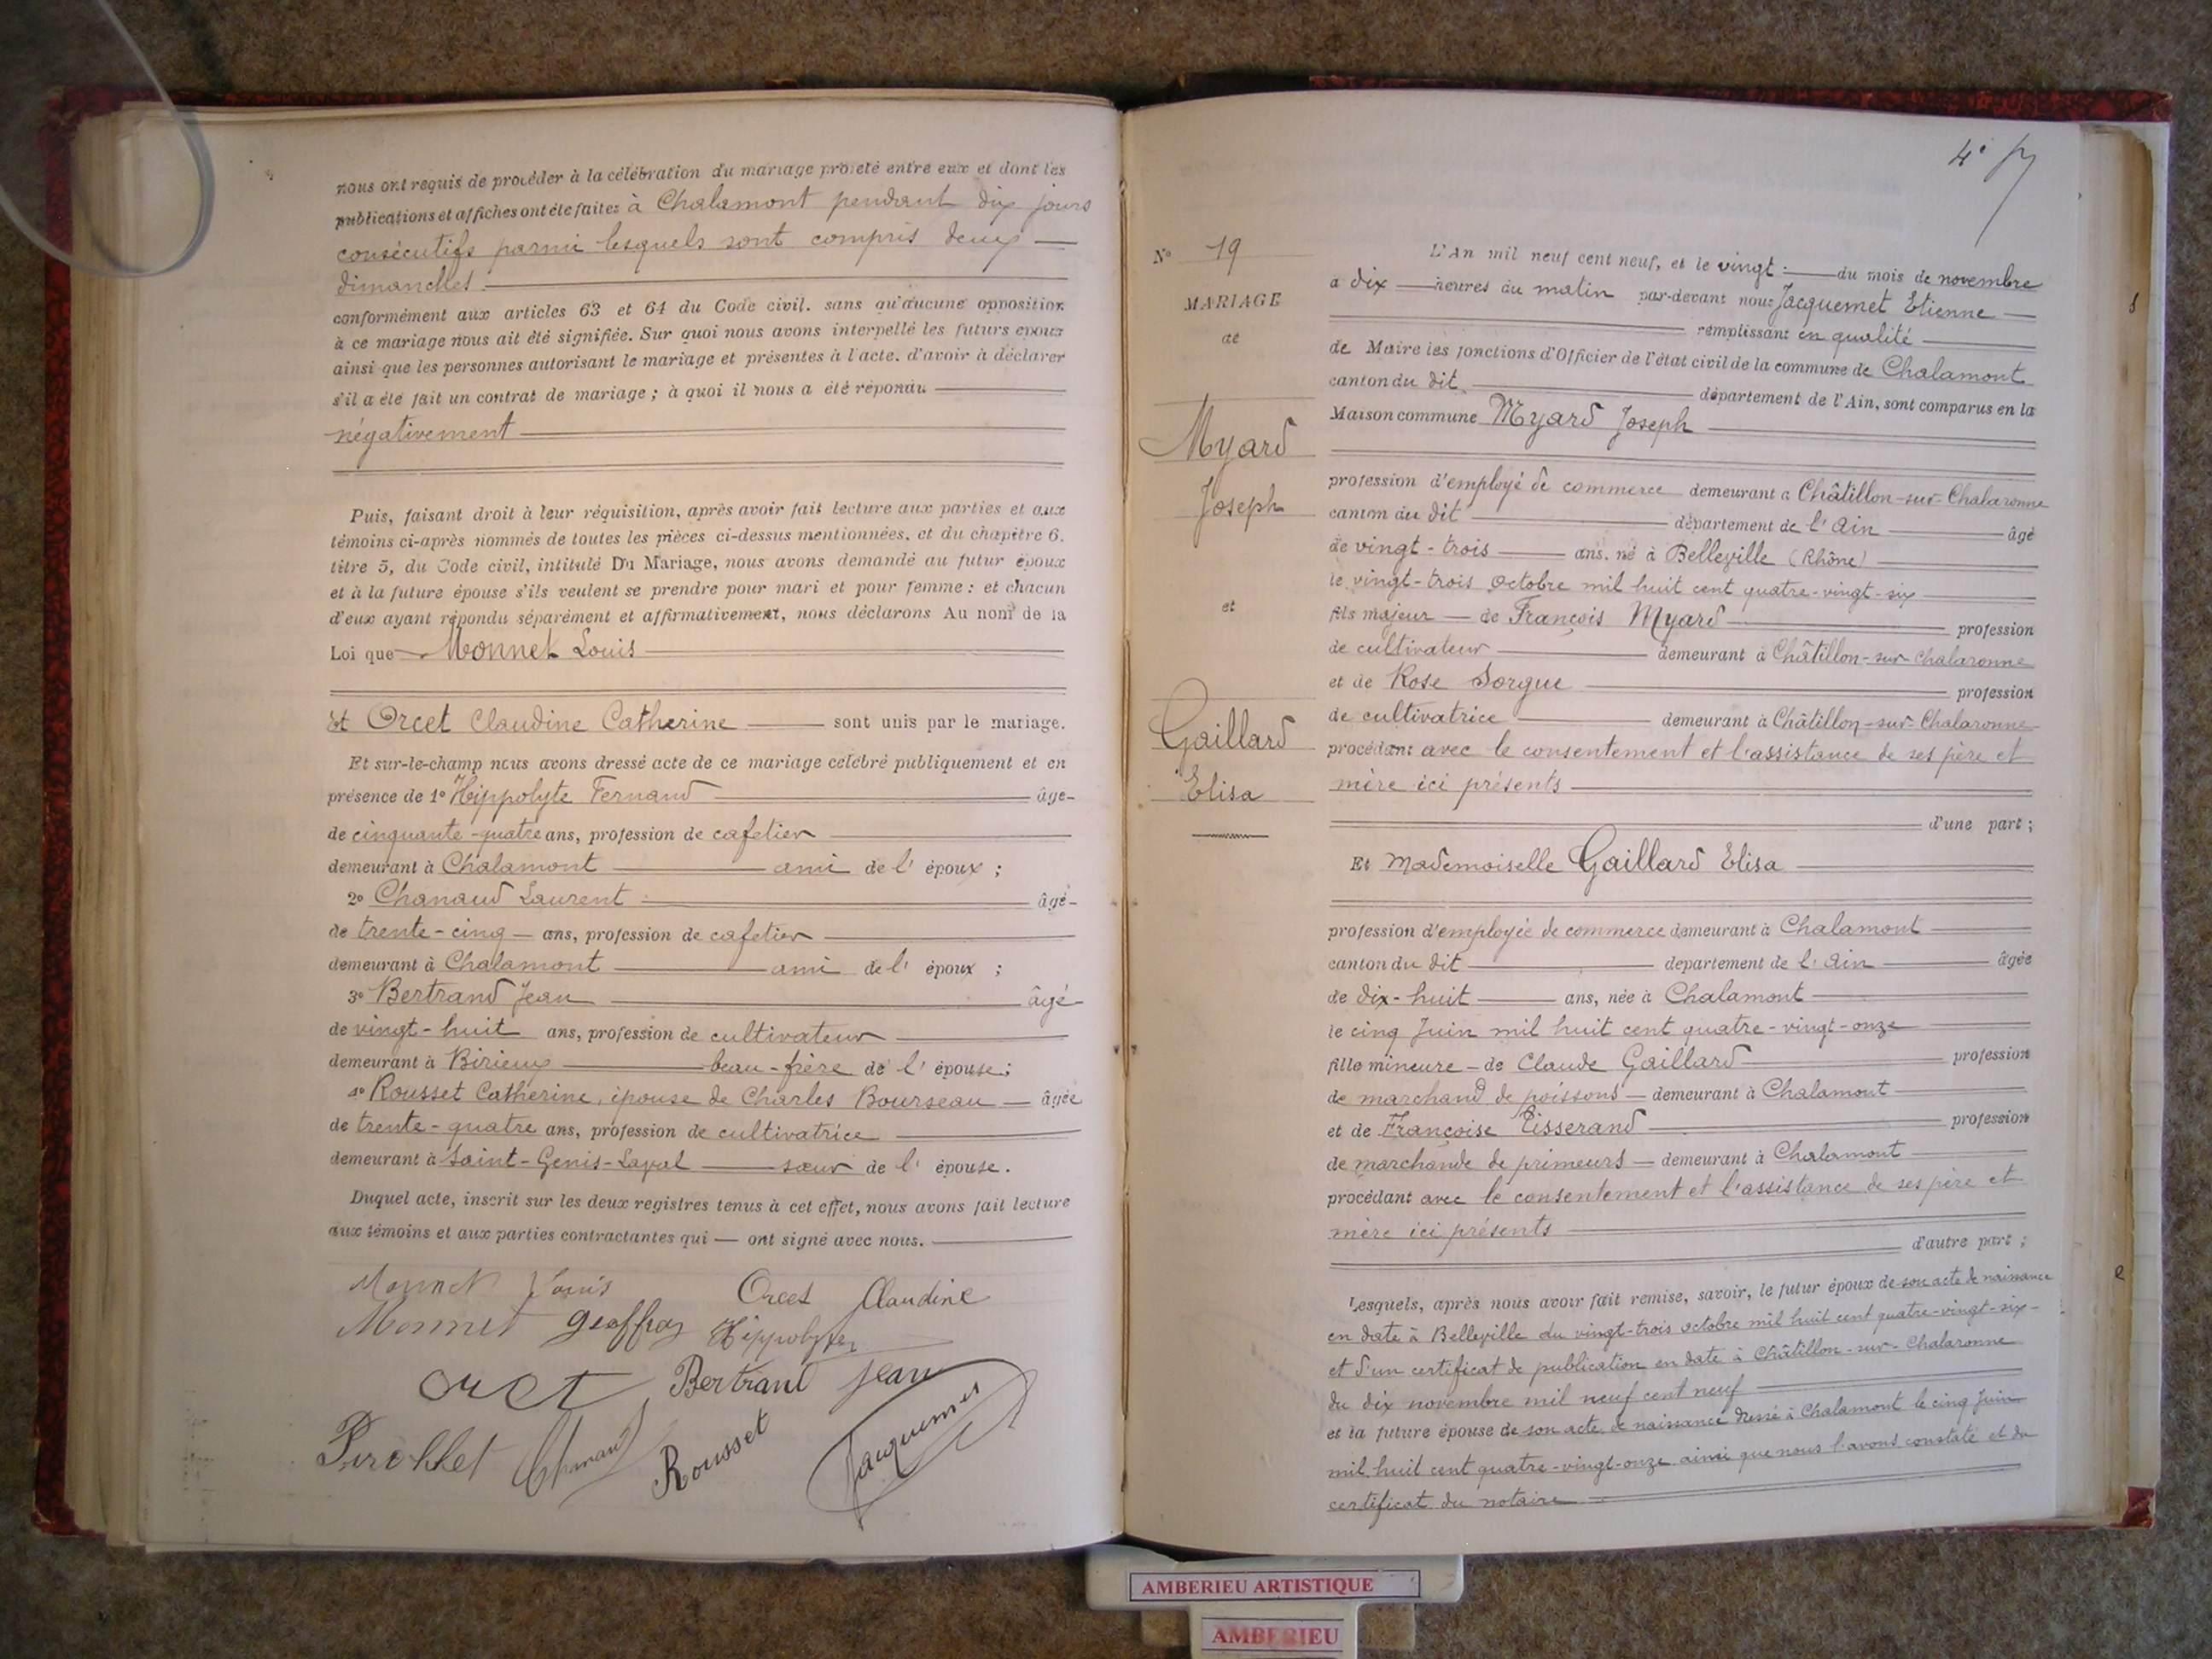 nous ont requis de procéder à la célébration du mariage projeté entre eux et dont les
publications et affiches ont été faites à Chalamont pendant dix jours
consécutifs parmi lesquels sont compris deux
dimanches
conformément aux articles 63 et 64 du Code civil. sans qu'aucune opposition
à ce mariage nous ait été signifiée. Sur quoi nous avons interpellé les futurs epoux
ainsi que les personnes autorisant le mariage et présentes à l'acte. d'avoir à déclarer
s'il a été fait un contrat de mariage ; à quoi il nous a été répondu
négativement
Puis, faisant droit à leur réquisition, après avoir fait lecture aux parties et aux
témoins ci-après nommés de toutes les pièces ci-dessus mentionnées, et du chapitre 6.
titre 5, du Code civil, intitulé Du Mariage, nous avons demandé au futur époux
et à la future épouse s'ils veulent se prendre pour mari et pour femme : et chacun
d'eux ayant répondu séparément et affirmativement, nous déclarons Au nom de la
Loi que Monnet Louis
et Orcet Claudine Catherine sont unis par le mariage.
Et sur-le-champ nous avons dressé acte de ce mariage célébré publiquement et en
présence de 1° Hippolyte Fernand âge
de cinquante-quatre ans, profession de cafetier
demeurant à Chalamont ami de l' époux ;
2° Chanaud Laurent âgé
de trente-cinq ans, profession de cafetier
demeurant à Chalamont ami de l' époux ;
3° Bertrand Jean âgé
de vingt-huit ans, profession de cultivateur
demeurant à Birieux beau-frère de l' épouse ;
4° Rousset Catherine, épouse de Charles Bourseau âgée
de trente-quatre ans, profession de cultivatrice
demeurant à Saint-Genis-Laval sœur de l' épouse.
Duquel acte, inscrit sur les deux registres tenus à cet effet, nous avons fait lecture
aux témoins et aux parties contractantes qui — ont signé avec nous.
Monnet Louis Orcet Claudine
Monnet Geoffray Hippolyte
Orcet Bertrand Jean
Chanaud Rousset Jacquemet
N° 19
MARIAGE
de
Myard
Joseph
et
Gaillard
Elisa
L'An mil neuf cent neuf, et le vingt du mois de novembre
à dix heures du matin par-devant nous Jacquemet Etienne
remplissant en qualité
de Maire les fonctions d'Officier de l'état civil de la commune de Chalamont
canton du dit département de l'Ain, sont comparus en la
Maison commune Myard Joseph
profession d'employé de commerce demeurant à Châtillon-sur-Chalaronne
canton du dit département de l'Ain âgé
de vingt-trois ans. né à Belleville (Rhône)
le vingt-trois octobre mil huit cent quatre-vingt-six
fils majeur de François Myard profession
de cultivateur demeurant à Châtillon-sur-Chalaronne
et de Rose Sorgue profession
de cultivatrice demeurant à Châtillon-sur-Chalaronne
procédant avec le consentement et l'assistance de ses père et
mère ici présents
d'une part ;
Et Mademoiselle Gaillard Elisa
profession d'employée de commerce demeurant à Chalamont
canton du dit departement de l'Ain âgée
de dix-huit ans, née à Chalamont
le cinq Juin mil huit cent quatre-vingt-onze
fille mineure de Claude Gaillard profession
de marchand de poissons demeurant à Chalamont
et de Françoise Tisserand profession
de marchande de primeurs demeurant à Chalamont
procédant avec le consentement et l'assistance de ses père et
mère ici présents
d'autre part ;
Lesquels, après nous avoir fait remise, savoir, le futur époux de son acte de naissance
en date à Belleville du vingt-trois octobre mil huit cent quatre-vingt-six
et d'un certificat de publication en date à Châtillon-sur-Chalaronne
du dix novembre mil neuf cent neuf
et la future épouse de son acte de naissance dressé à Chalamont le cinq juin
mil huit cent quatre-vingt-onze ainsi que nous l'avons constaté et du
certificat du notaire
AMBERIEU ARTISTIQUE
AMBERIEU